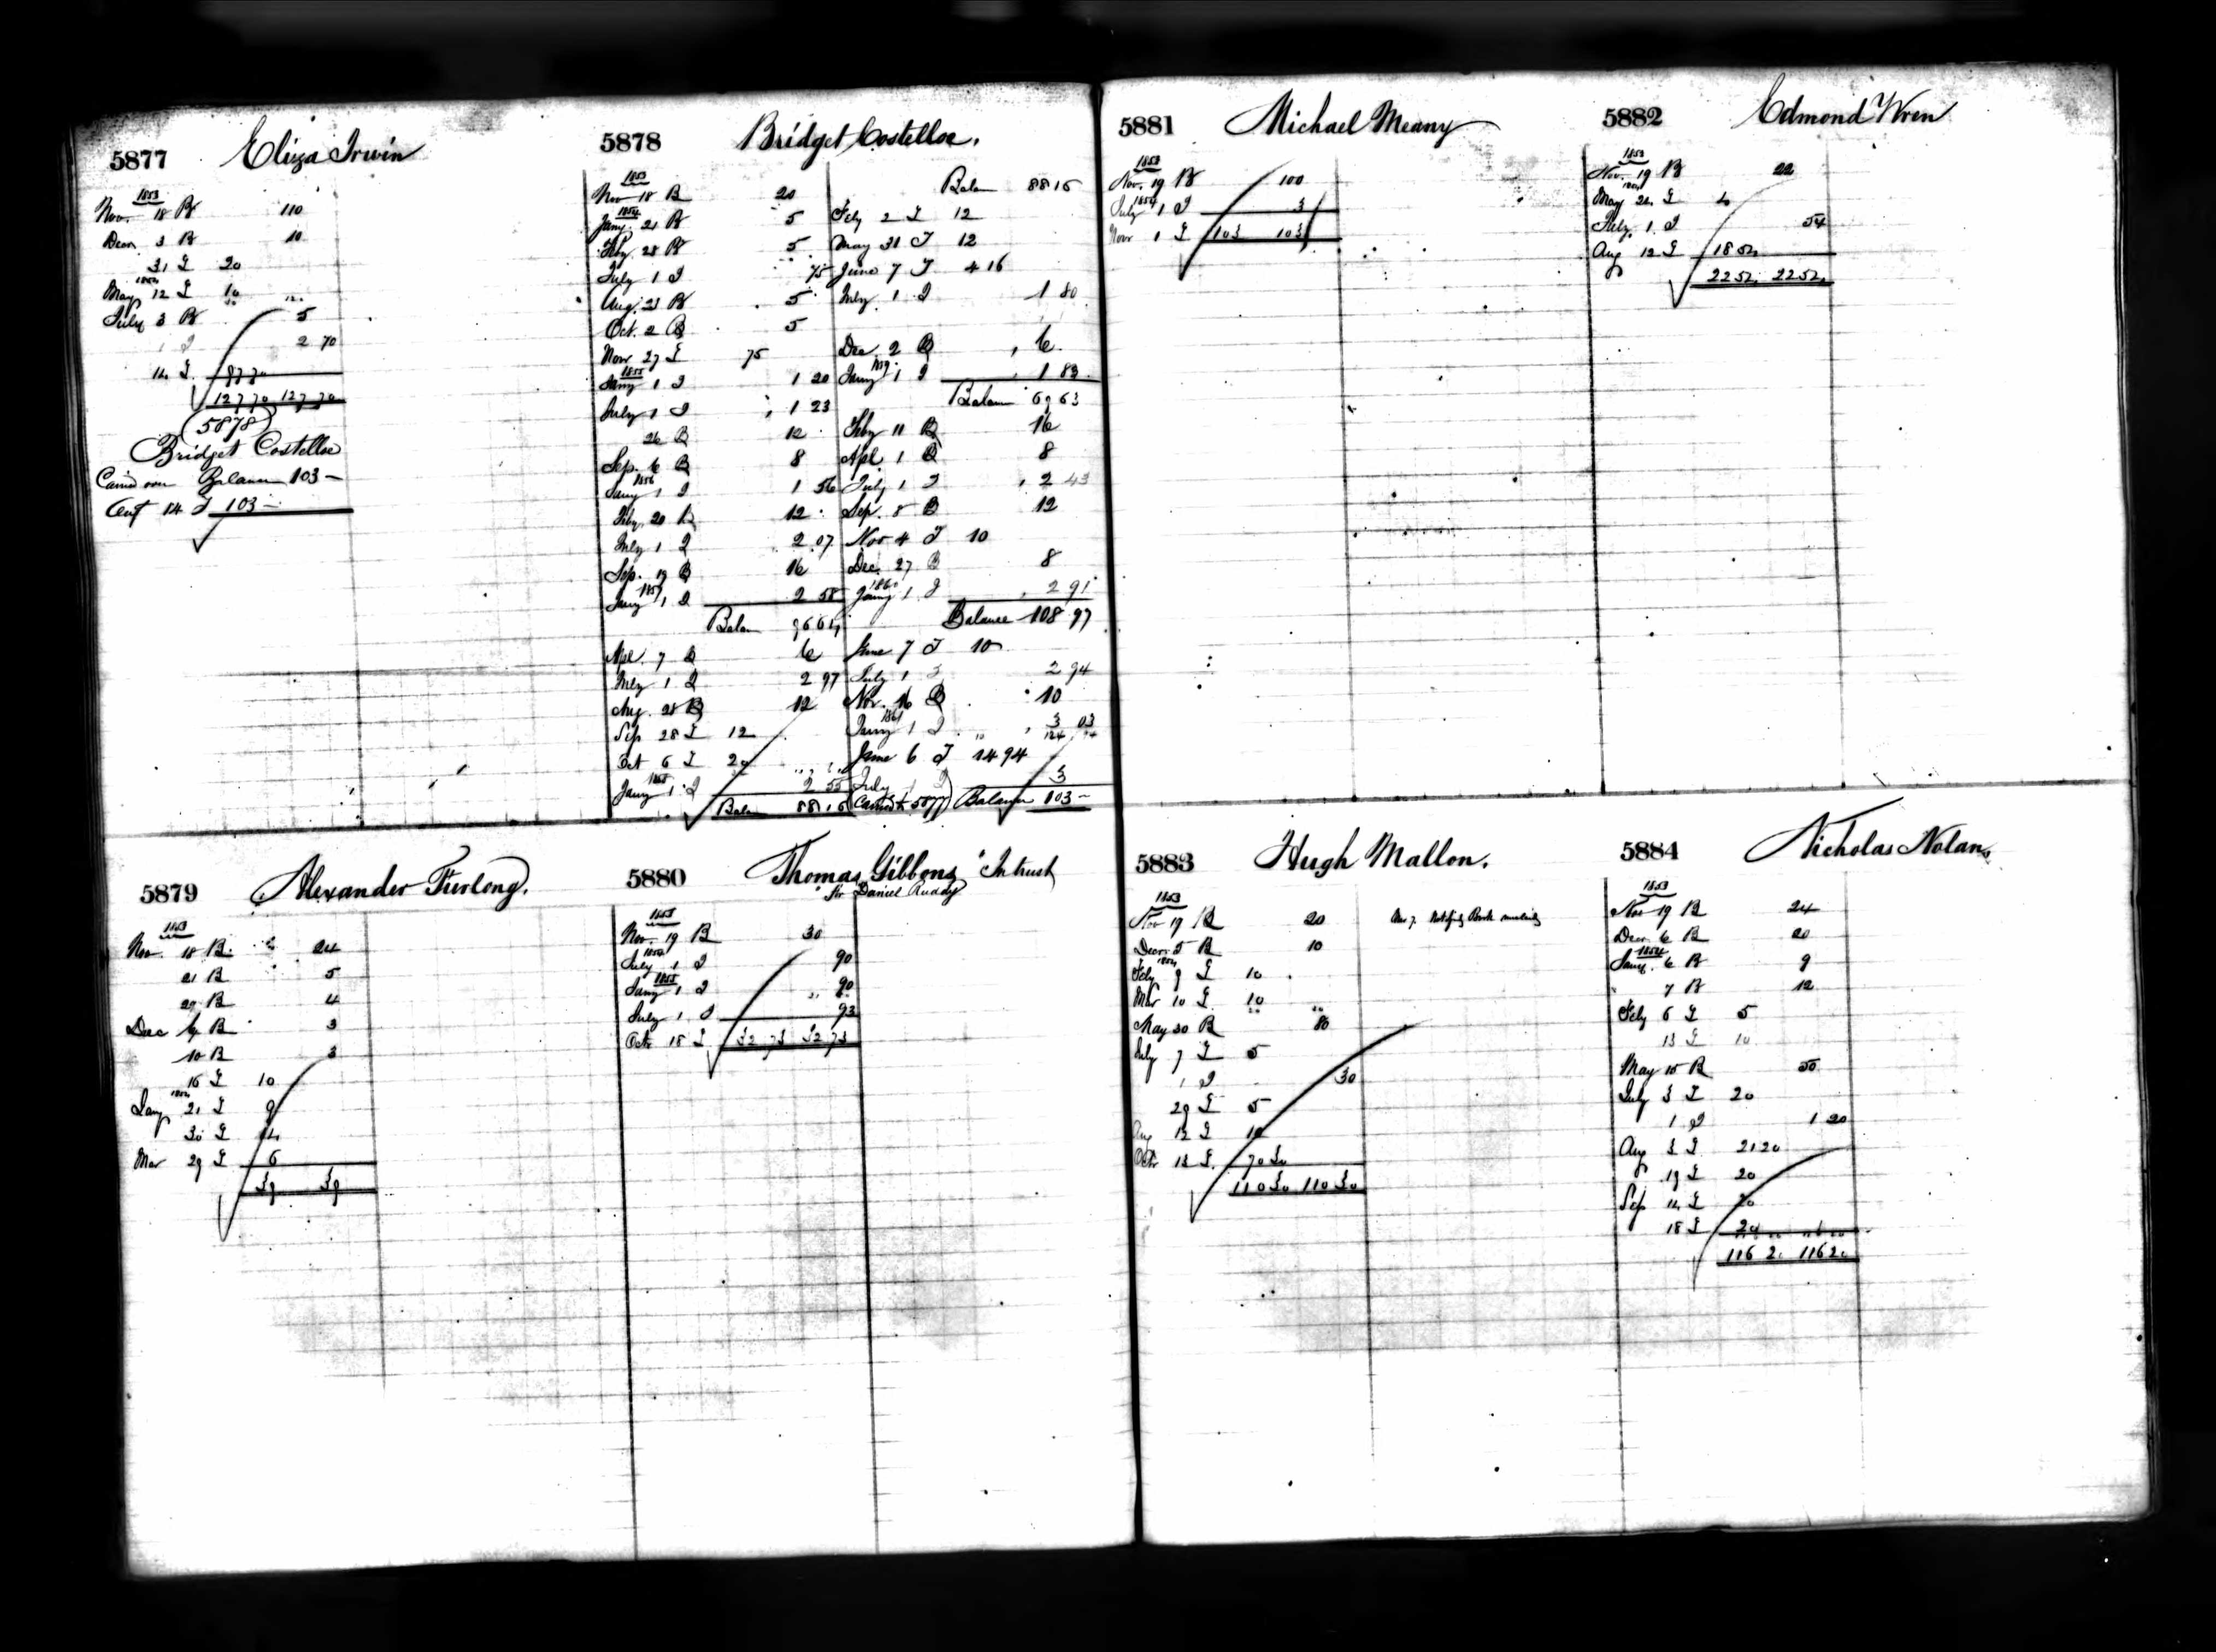 5877 Eliza Irwin
1853
Nov. 18 B 110
Decr 3 B 10
31 T 20
1854
May 12 T 10
July 3 B 5
1 I 2 70
14 T 87 70
127 70 127 70
(5878)
Bridget Costelloe
Carrd over Balance 103 —
Augt 14 T 103 —
5878 Bridget Costelloe.
1853
Nov 18 B 20
1854
Jany. 21 B 5
Feby. 28 B 5
July 1 I 75
Aug. 23 B 5
Oct. 2 B 5
Novr 27 T 75
1855
Jany 1 I 1 20
July 1 I 1 23
26 B 12
Sep. 6 B 8
1856
Jany 1 I 1 56
Feby. 20 B 12
July 1 I 2.07
Sep. 19 B 16
1857
Jany 1 I 2 58
Balan 96 64
Apl. 7 B 6
July 1 I 2 97
Aug. 28 B 12
Sep 28 T 12
Oct 6 T 20
1858
Jany 1 I 2 55
Balan 88 16
Balan 88 16
Feby 2 T 12
May 31 T 12
June 7 T 4 16
July 1 I 1 80
Dec. 2 B 6
1859
Jany 1 I 1 83
Balan 69 63
Feby 11 B 16
Apl 1 B 8
July 1 I 2 43
Sep. 8 B 12
Nov 4 T 10
Dec. 27 B 8
1860
Jany 1 I 2 91
Balance 108 97
June 7 T 10
July 1 I 2 94
Nov. 16 B 10
1861
Jany 1 I 3 03
June 6 T 14 94
July 1 I 3
Carried to 5877) Balance 103 —
5879 Alexander Furlong.
1853
Nov. 18 B 24
21 B 5
29 B 4
Dec 6 B 3
10 B 3
16 T 10
1854
Jany 21 T 9
30 T 14
Mar 29 T 6
39 39
5880 Thomas Gibbons "In trust
" for Daniel Ruddy
1853
Nov. 19 B 30
1854
July 1 I 90
1855
Jany 1 I 90
July 1 I 93
Octr 18 T 32 73 32 73
5881 Michael Meany
1853
Nov. 19 B 100
1854
July 1 I 3
Novr 1 T 103 103
5882 Edmond Wren
1853
Nov. 19 B 22
1854
May 24 T 4
July. 1 I 54
Aug 12 T 18 54
22 54 22 54
5883 Hugh Mallon.
1853
Nov 19 B 20
Decr. 5 B 10
1854
Feby 9 T 10
Mar 10 T 10
May 30 B 80
July 7 T 5
1 I 30
29 T 5
Aug 12 T 10
Octr 13 T 70 30
110 30 110 30
5884 Nicholas Nolan.
1853
Nov 19 B 24
Decr 6 B 20
1854
Jany. 6 B 9
7 B 12
Feby 6 T 5
13 T 10
May 15 B 50
July 3 T 20
1 I 1 20
Aug 3 T 21 20
19 T 20
Sep 14 T 20
18 T 20
116 20 116 20